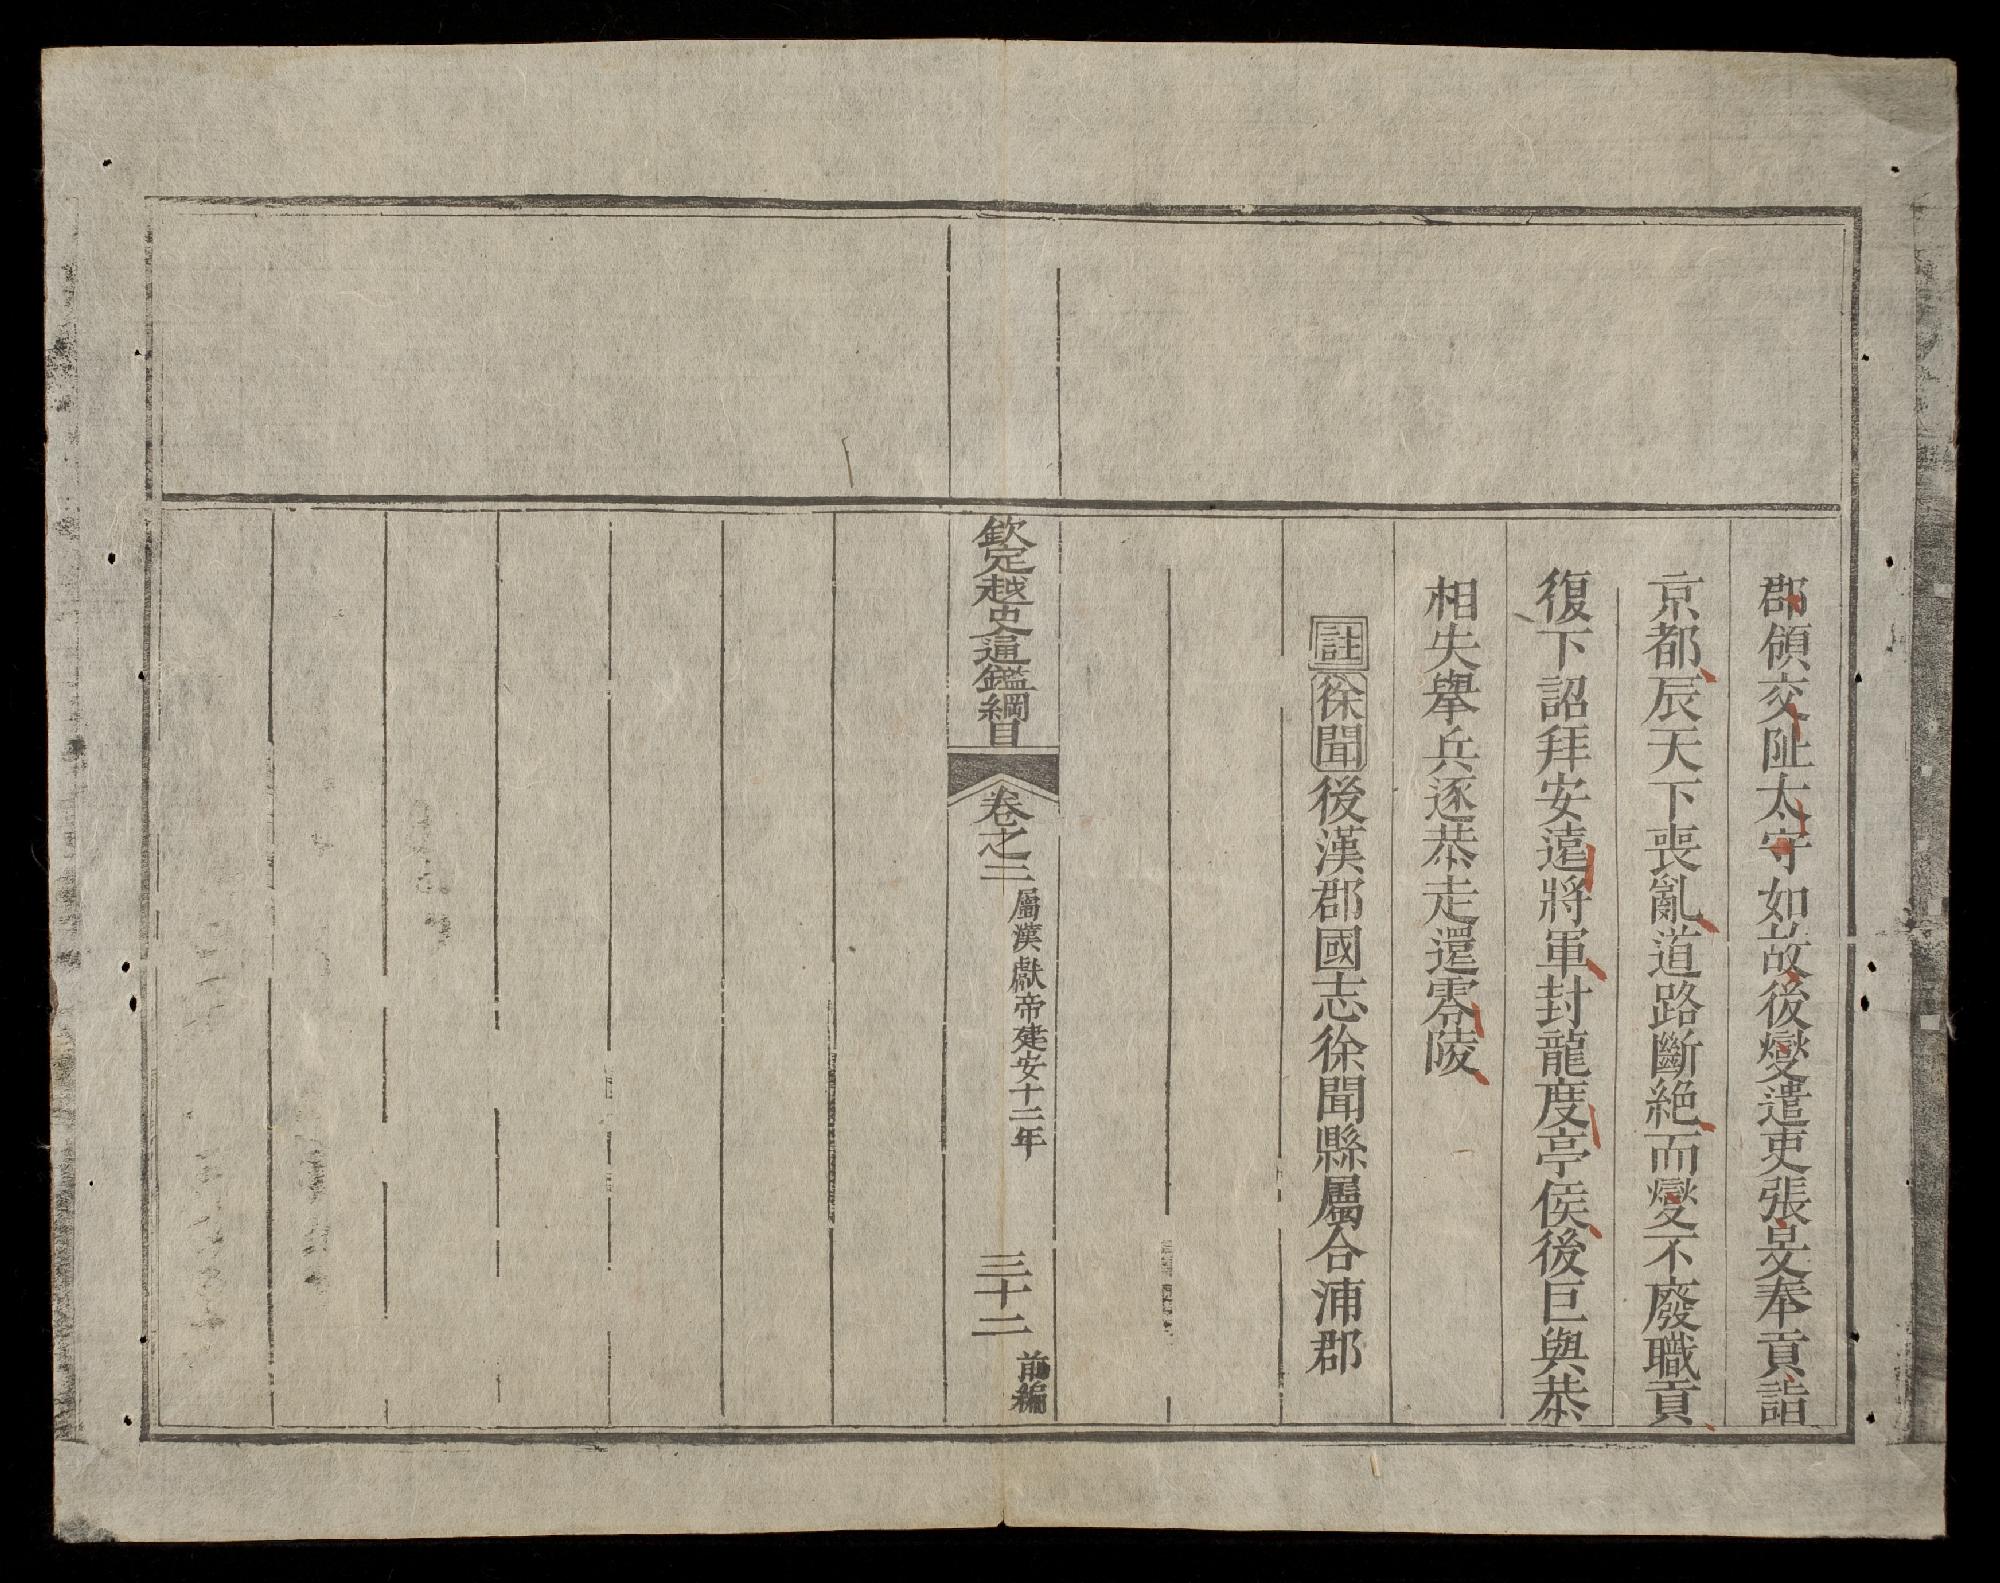 郡領交阯太守如故後燮遣吏張旻奉貢詣
京都辰天下喪亂道路斷絶而燮不廢職貢
復下詔拜安遠將軍封龍度亭侯後巨與恭
相失舉兵逐恭走還零陵
註徐聞後漢郡國志徐聞縣屬合浦郡
欽定越史通鑑綱目
卷之二
屬漢獻帝建安十二年
三十二
前編